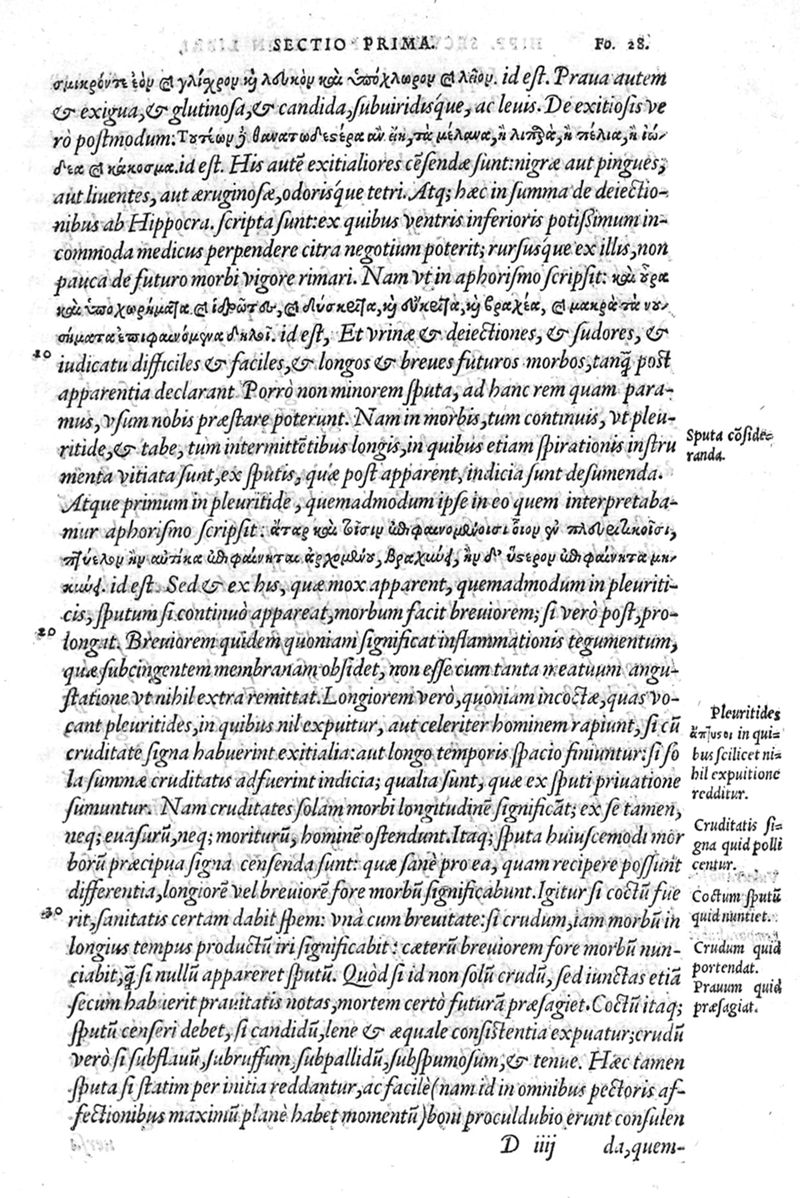 SECTIO PRIMA. Fo. 28.
σμικρόν τε ἐὸν καὶ γλίχρον καὶ λευκὸν καὶ ὑπόχλωρον καὶ λεῖον. id eſt. Praua autem
& exigua, & glutinoſa, & candida, ſubuiridíſque, ac leuis. De exitioſis ve
rò poſtmodum: Τουτέων δὲ θανατωδέστερα ἂν εἴη, τὰ μέλανα, ἢ λιπαρὰ, ἢ πέλια, ἢ ἰώ-
δεα καὶ κάκοσμα. id eſt. His autē exitialiores cēſendæ ſunt: nigræ aut pingues,
aut liuentes, aut æruginoſæ, odoríſque tetri. Atq; hæc in ſumma de deiectio-
nibus ab Hippocra. ſcripta ſunt: ex quibus ventris inferioris potiſſimum in-
commoda medicus perpendere citra negotium poterit; rurſuſque ex illis, non
pauca de futuro morbi vigore rimari. Nam vt in aphoriſmo ſcripſit: καὶ οὖρα
καὶ ὑποχωρήματα καὶ ἱδρῶτες, καὶ δύσκριτα, καὶ εὔκριτα, καὶ βραχέα, καὶ μακρὰ τὰ νου-
σήματα ἐπιφαινόμενα δηλοῖ. id eſt, Et vrinæ & deiectiones, & ſudores, &
10 iudicatu difficiles & faciles, & longos & breues futuros morbos, tanq̄ poſt
apparentia declarant. Porrò non minorem ſputa, ad hanc rem quam para-
mus, vſum nobis præſtare poterunt. Nam in morbis, tum continuis, vt pleu-
ritide, & tabe, tum intermittētibus longis, in quibus etiam ſpirationis inſtru
menta vitiata ſunt, ex ſputis, quæ poſt apparent, indicia ſunt deſumenda.
Sputa cōſide=
randa.
Atque primum in pleuritide, quemadmodum ipſe in eo quem interpretaba-
mur aphoriſmo ſcripſit: ἀτὰρ καὶ τοῖσιν ἐπιφαινομένοισι οἷον ἐν πλευριτικοῖσι,
πτύελον ἢν αὐτίκα ἐπιφαίνηται ἀρχομένου, βραχύνει, ἢν δ' ὕστερον ἐπιφαίνηται μη-
κύνει. id eſt. Sed & ex his, quæ mox apparent, quemadmodum in pleuriti-
cis, ſputum ſi continuò appareat, morbum facit breuiorem; ſi verò poſt, pro-
20 longat. Breuiorem quidem quoniam ſignificat inflammationis tegumentum,
quæ ſubcingentem membranam obſidet, non eſſe cum tanta meatuum angu-
ſtatione vt nihil extra remittat. Longiorem verò, quoniam incoctæ, quas vo-
cant pleuritides, in quibus nil expuitur, aut celeriter hominem rapiunt, ſi cū
cruditate ſigna habuerint exitialia: aut longo temporis ſpacio finiuntur: ſi ſo
la ſummæ cruditatis adfuerint indicia; qualia ſunt, quæ ex ſputi priuatione
ſumuntur. Nam cruditates ſolam morbi longitudinē ſignificāt; ex ſe tamen,
Pleuritides
ἄπτυσοι in qui=
bus ſcilicet ni=
hil expuitione
redditur.
neq; euaſurū, neq; moriturū, hominē oſtendunt. Itaq; ſputa huiuſcemodi mor
borū præcipua ſigna cenſenda ſunt: quæ ſanè pro ea, quam recipere poſſunt
Cruditatis ſi=
gna quid polli
centur.
differentia, longiorē vel breuiorē fore morbū ſignificabunt. Igitur ſi coctū fue
30 rit, ſanitatis certam dabit ſpem: vnà cum breuitate: ſi crudum, iam morbū in
Coctum ſputū
quid nuntiet.
longius tempus productū iri ſignificabit: cæterū breuiorem fore morbū nun-
ciabit, q̄ ſi nullū appareret ſputū. Quòd ſi id non ſolū crudū, ſed iunctas etiā
Crudum quid
portendat.
ſecum habuerit prauitatis notas, mortem certò futurā præſagiet. Coctū itaq;
Prauum quid
præſagiat.
ſputū cenſeri debet, ſi candidū, lene & æquale conſiſtentia expuatur; crudū
verò ſi ſubflauū, ſubruffum, ſubpallidū, ſubſpumoſum, & tenue. Hæc tamen
ſputa ſi ſtatim per initia reddantur, ac facilè (nam id in omnibus pectoris af-
fectionibus maximū planè habet momentū) boni proculdubio erunt conſulen
D iiij da, quem-